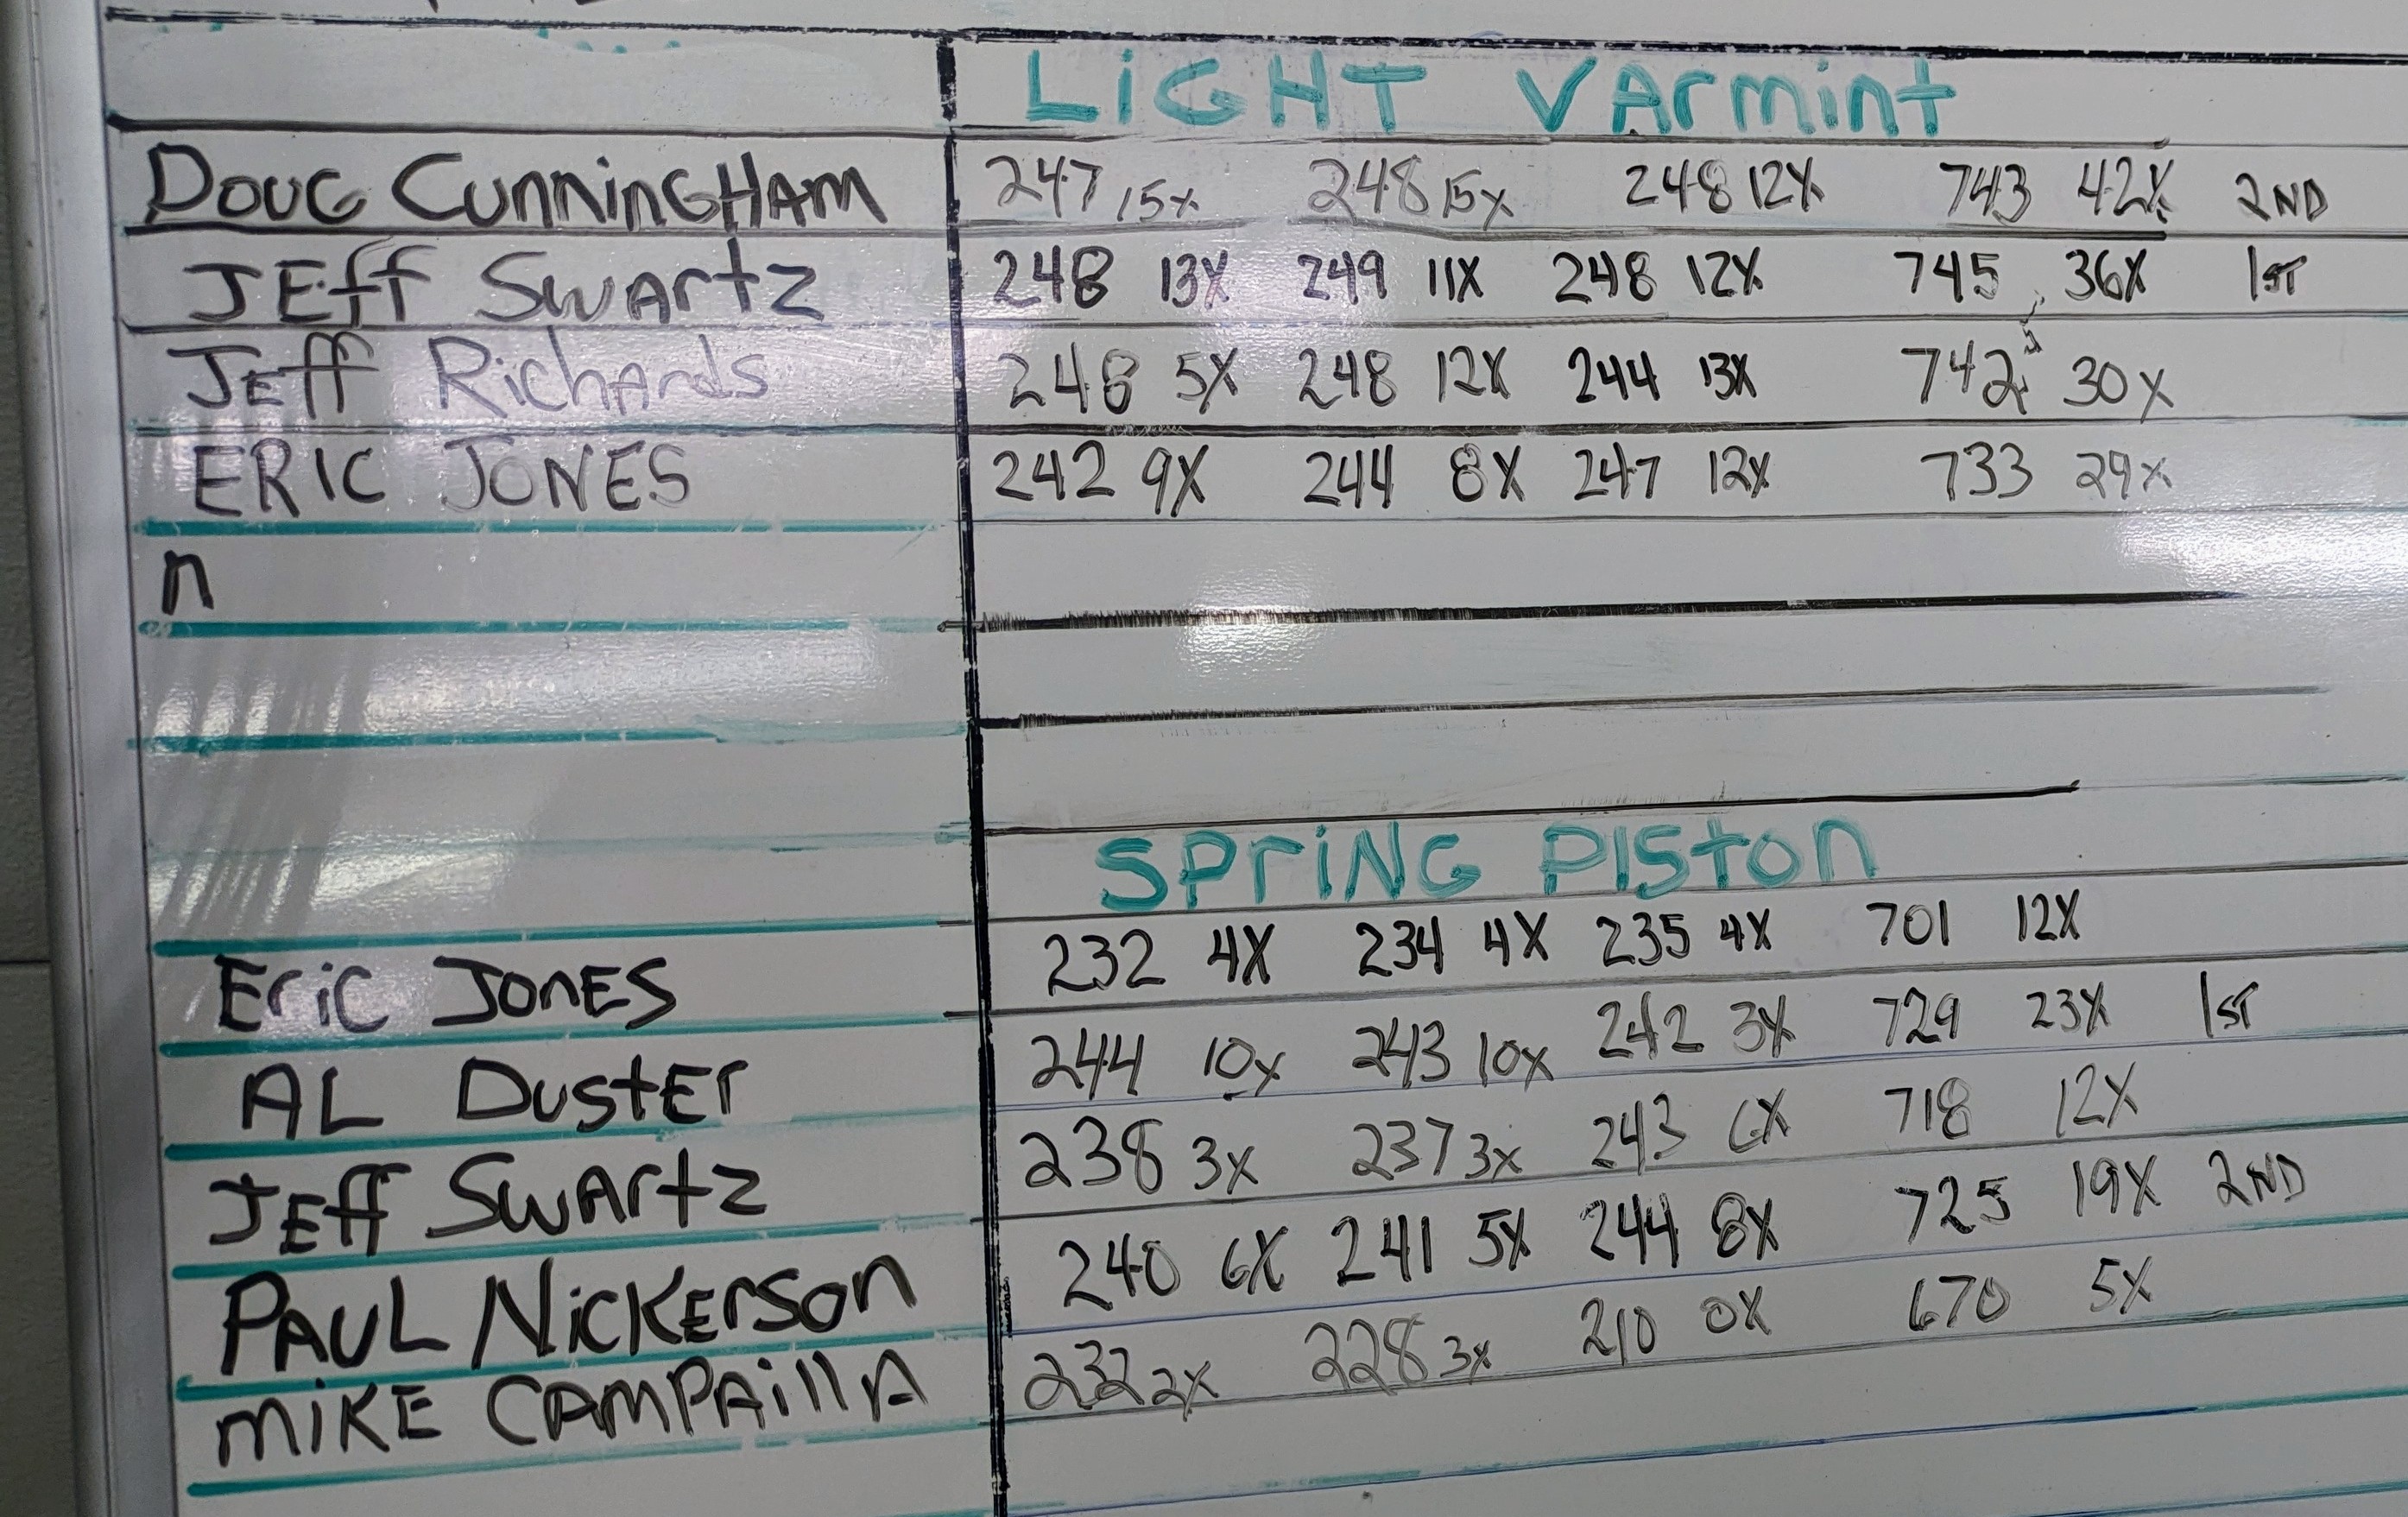 LiGHT VArmint
DOUG CUnninGHAM 247 15x 248 15x 248 12X 743 42X 2ND
JEff SwArtz 248 13X 249 11X 248 12X 745 36X 1ST
JEff RichArds 248 5X 248 12X 244 13X 742 30X
ERIC JONES 242 9X 244 8X 247 12X 733 29X
n
SPriNG PIStON
Eric JonES 232 4X 234 4X 235 4X 701 12X
AL DustEr 244 10x 243 10x 242 3X 729 23X 1ST
JEff SwArtz 238 3x 237 3x 243 6X 718 12X
PAUL NicKErson 240 6X 241 5X 244 8X 725 19X 2ND
miKE CAMPAillA 232 2X 228 3x 210 0X 670 5X